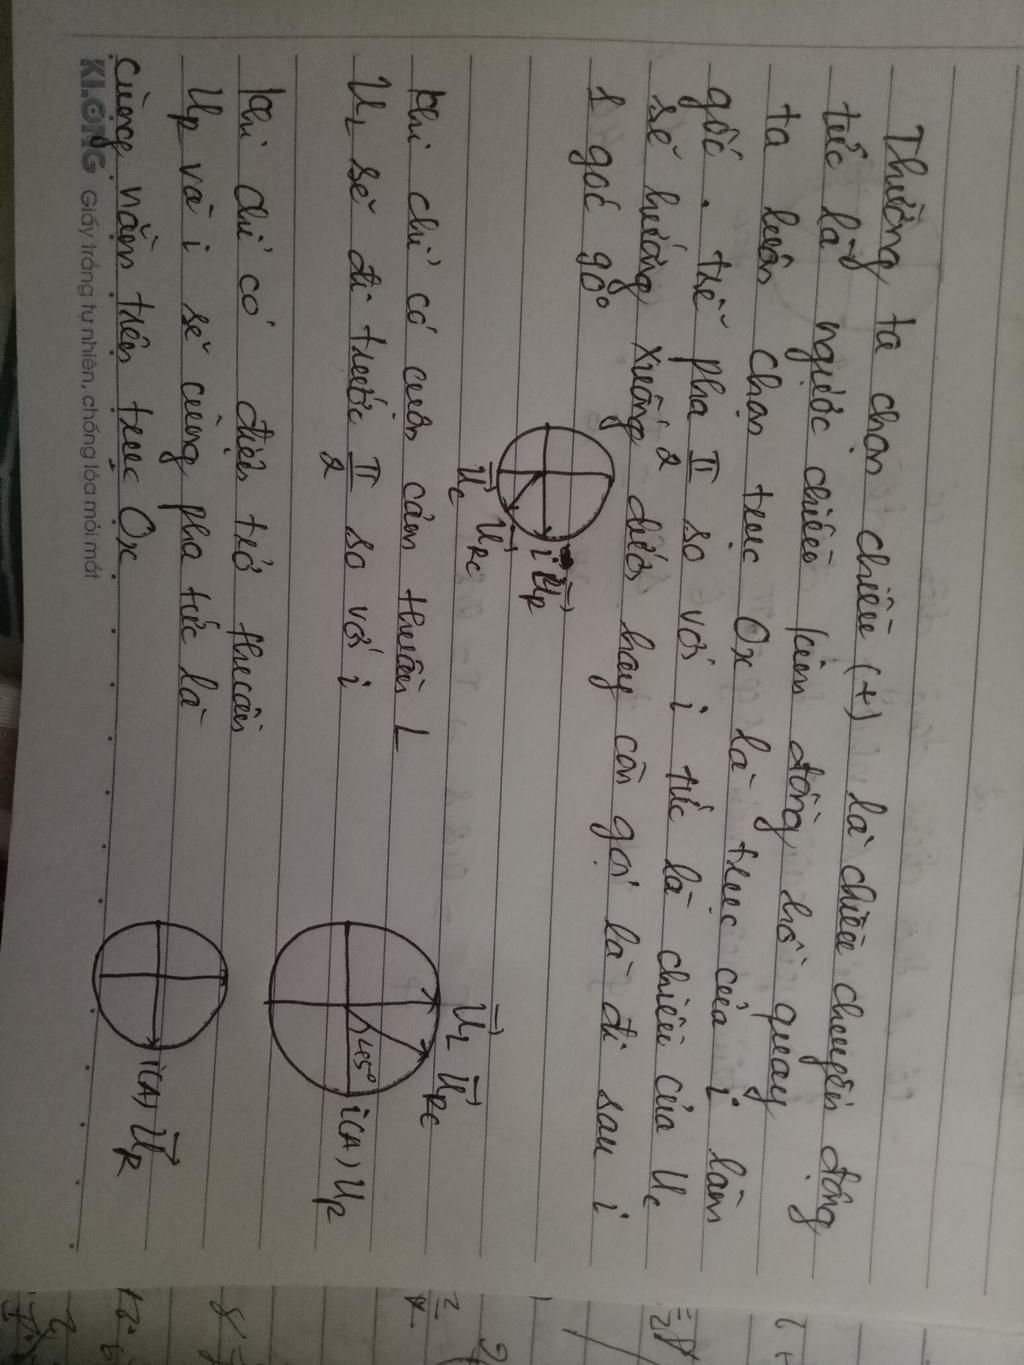 Thường ta chọn chiều (+) là chiều chuyển động
tức là ngược chiều kim đồng hồ quay
ta luôn chọn trục Ox là trục của i làm
gốc. trễ pha π/2 so với i tức là chiều của Uc
sẽ hướng xuống dưới hay còn gọi là đi sau i
1 góc 90°
i UR
URC
UC
Khi chỉ có cuộn cảm thuần L
UL sẽ đi trước π/2 so với i
UL URC
45°
i(A) UR
Khi chỉ có điện trở thuần
UR và i sẽ cùng pha tức là
cùng nằm trên trục Ox
i(A) UR
KLONG Giấy trắng tự nhiên, chống lóa mỏi mắt